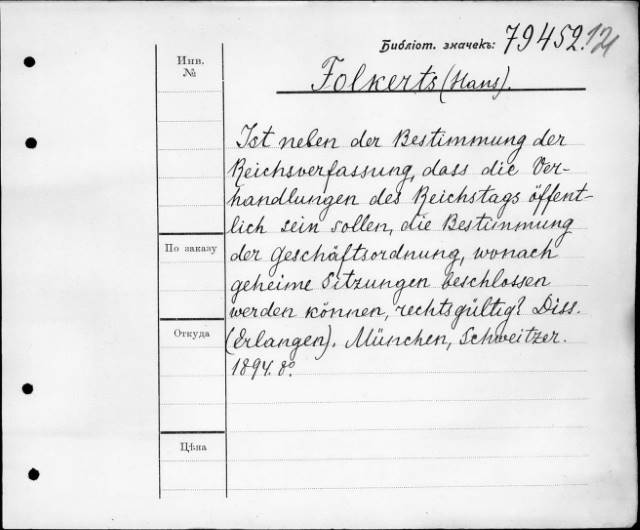 Библіот. значекъ: 79452.
Folkerts (Hans).
Инв. №
Ist neben der Bestimmung der
Reichsverfassung, dass die Ver-
handlungen des Reichstags öffent-
lich sein sollen, die Bestimmung
По заказу
der Geschäftsordnung, wonach
geheime Sitzungen beschlossen
werden können, rechtsgültig? Diss.
Откуда
(Erlangen). München, Schweitzer.
1894. 8º.
Цѣна